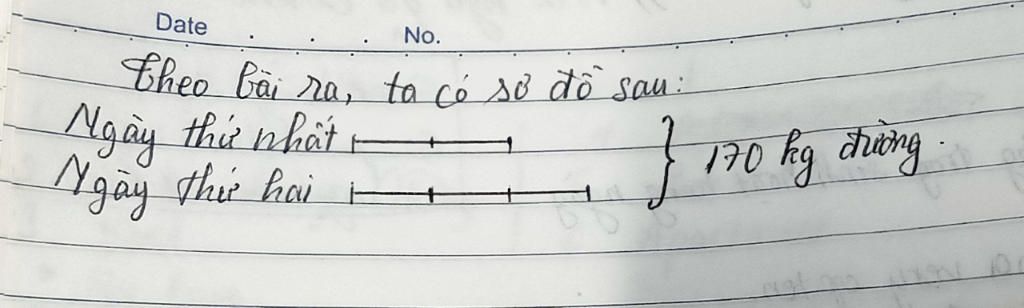 Date . . . . No.
Theo bài ra, ta có sơ đồ sau:
Ngày thứ nhất
Ngày thứ hai
170 kg đường.